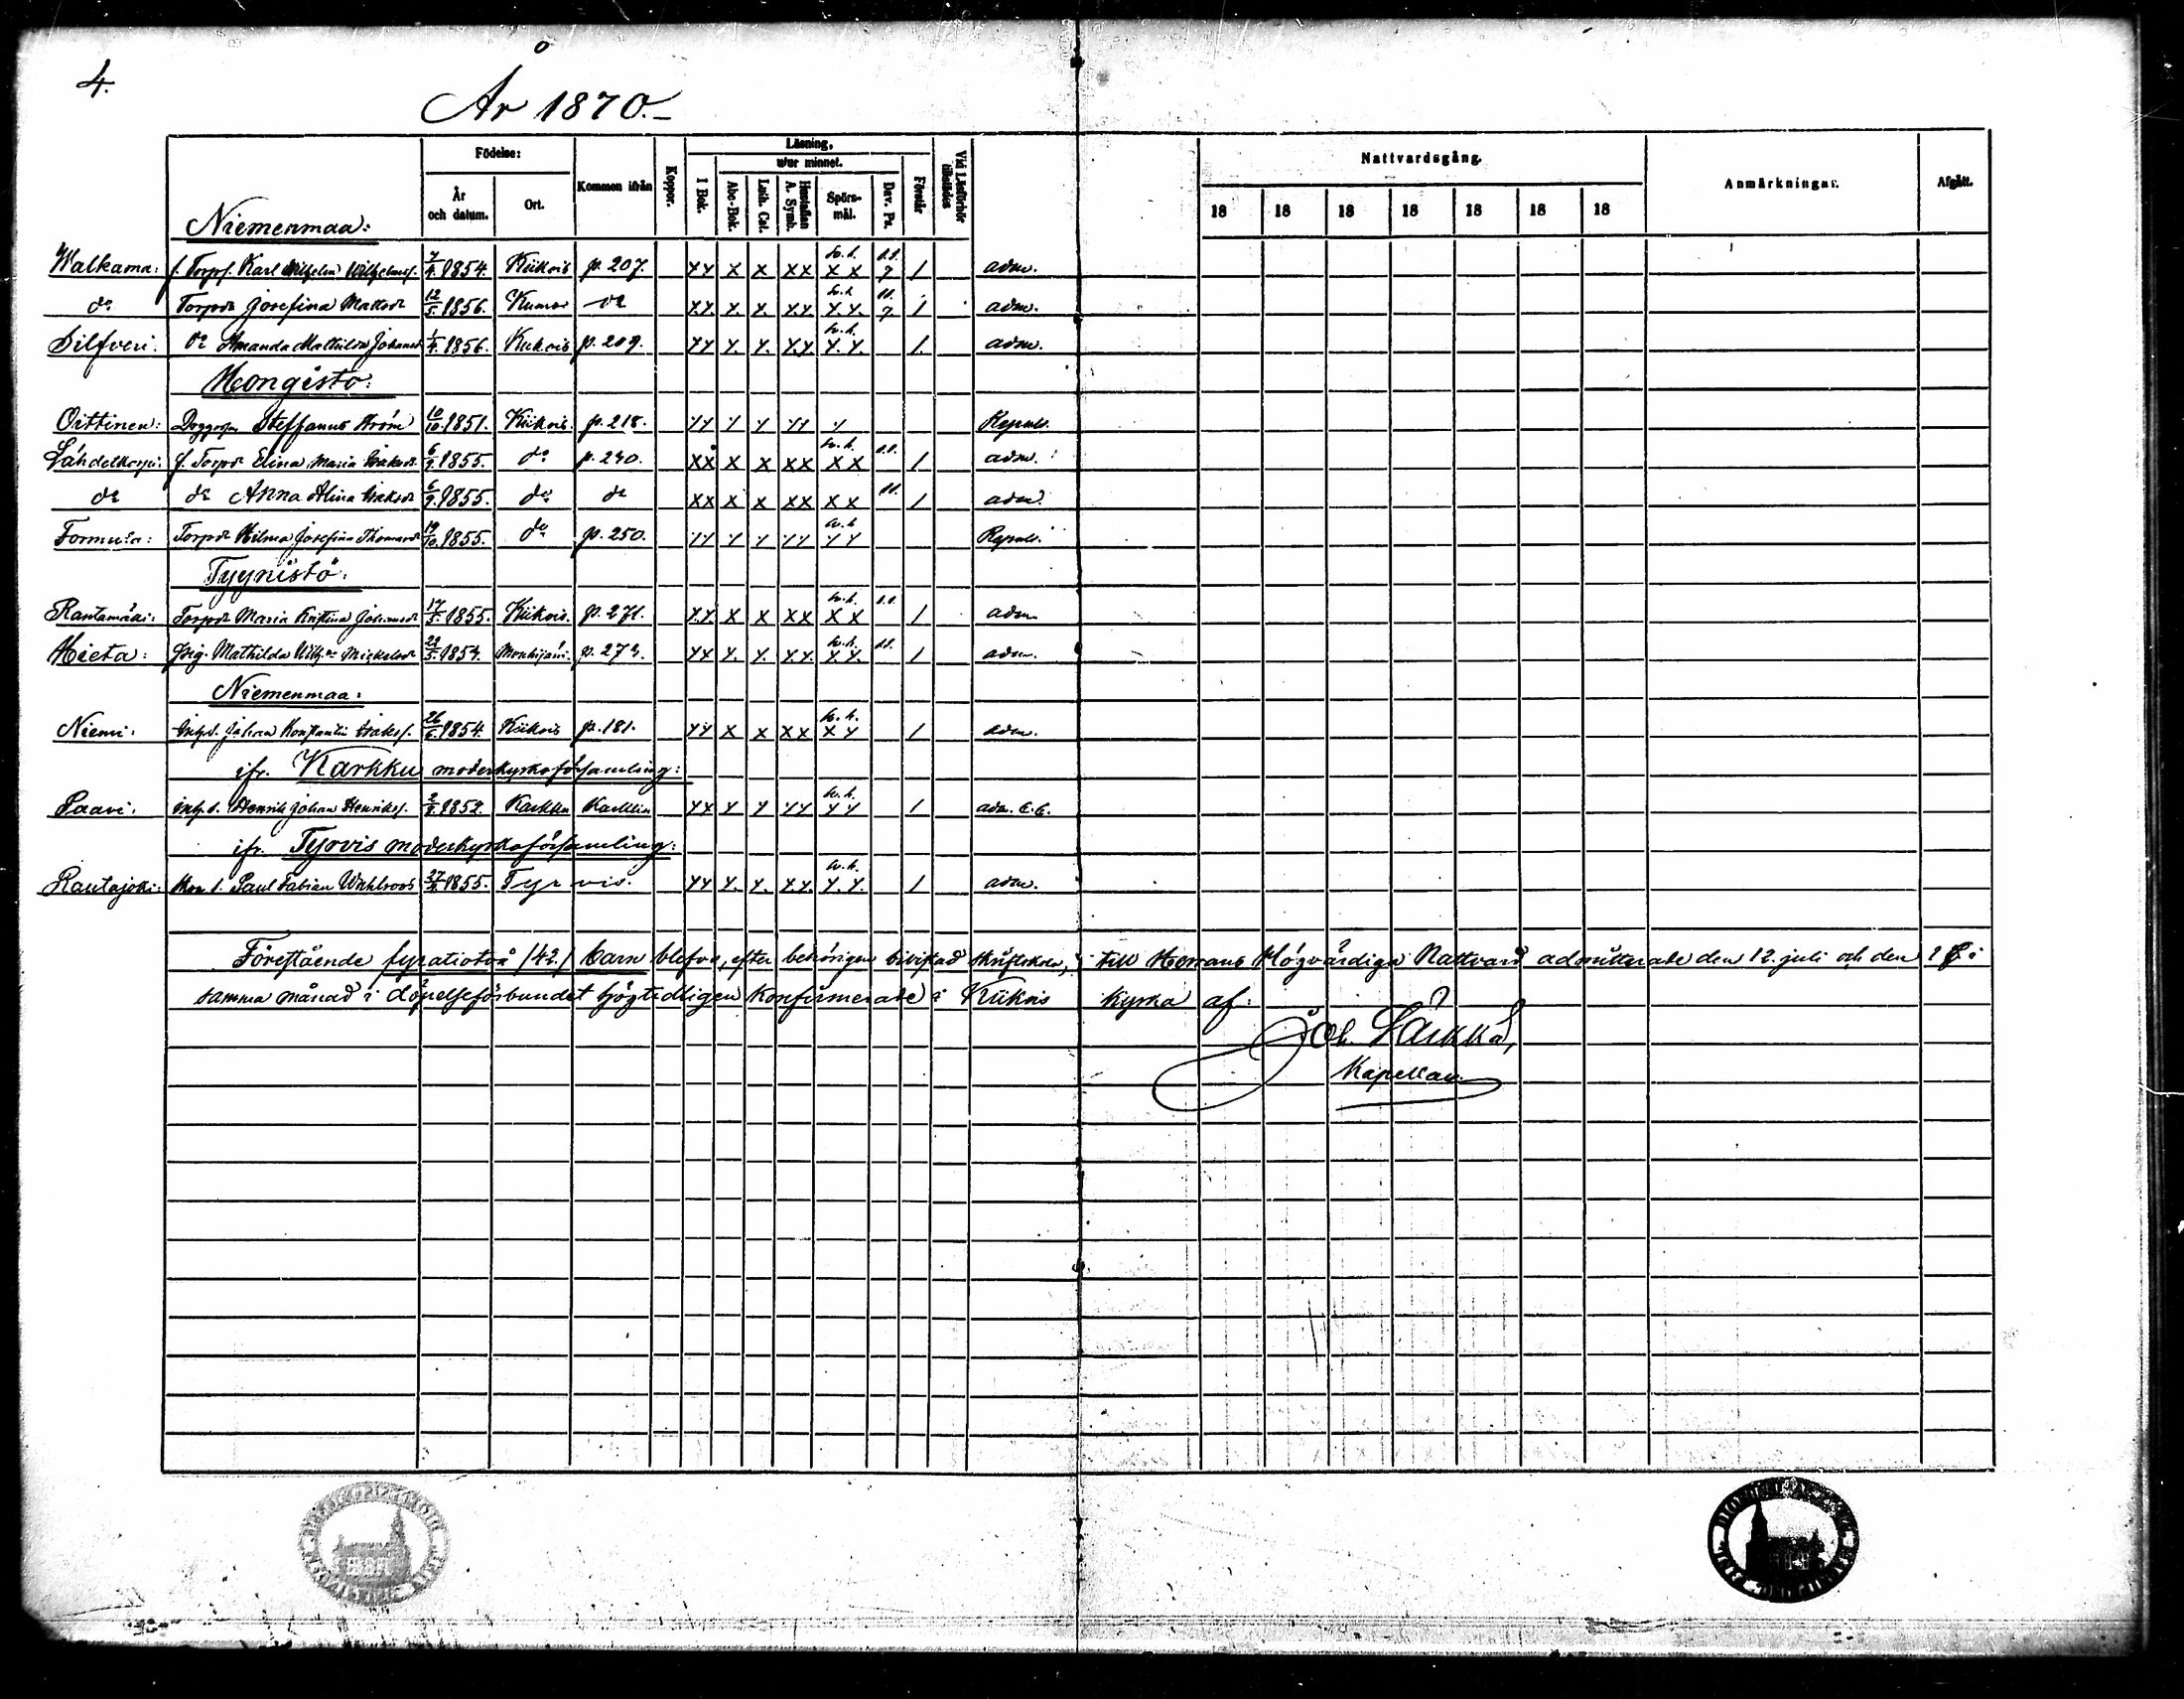 4.
År 1870.
Födelse:
Läsning,
utur minnet.
Nattvardsgång.
År och datum.
Ort.
Kommen ifrån
Koppor.
I Bok.
Abc-Bok.
Luth. Cat.
Hustaflan A. Symb.
Spörs-mål.
Dav. Ps.
Förstår
Vid Läsförhör tillstädes
18 18 18 18 18 18 18
Anmärkningar.
Afgått.
Niemenmaa:
Walkama: f. Torps. Karl Wilhelm Wilhelmss. 7/4 1854. Kiikois p. 207. xx x x xx xx 7 1 adm.
do Torpdr Josefina Mattsdr 12/5 1856. Kumo do xx x. x. xx x.x. 7 1 adm.
Silfveri: do Amanda Mathilda Johansd 1/4 1856. Kiikois p. 209. xx x. x. x.x x.x. 1. adm.
Hongisto:
Oittinen: Steffanus 10/10 1851. Kiikois. p. 218. xx x x xx x Repuls.
f. Torpdr Elina Maria Isaksdr 6/9 1855. do p. 240. xx x x xx xx 1 adm.
do do Anna Alina Isaksdr 6/9 1855. do do xx x x xx xx 1 adm.
Torpdr Hilma Josefina Thomasdr 19/10 1855. do p. 250. xx x x xx xx Repuls.
Tyynistö:
Rautamäki: Torpdr Maria Kristina Johansdr 17/5 1855. Kiikois. p. 271. x.x x x xx xx 1 adm
Hieta: Mathilda Mickelsdr 1854. p. 274. xx x. x. x.x. x.x. 1 adm.
Niemenmaa:
Niemi: Inh. s. Johan Konstantin Isakss. 26/6 1854. Kiikois p. 181. xx x x xx xx 1 adm.
ifr. Karkku moderkyrkoförsamling:
Paavi: Inh. s. Henrik Johan Henrikss. 1852. Karkku xx x x xx xx 1 adm.
ifr. Tyrvis moderkyrkoförsamling:
Rautajoki: s. Paul Fabian Wahlroos 1855. Tyrvis. xx x. x. x.x. x.x. 1 adm.
Förestående fyratiotvå /42./ barn blefvo, efter behörigen bivistad skriftskola, till Herrans Högvärdiga Nattvard admitterade den 12. juli och den i
samma månad i döpelseförbundet högtidligen konfirmerade i Kiikois Kyrka af:
Joh. Läkkä,
Kapellan.